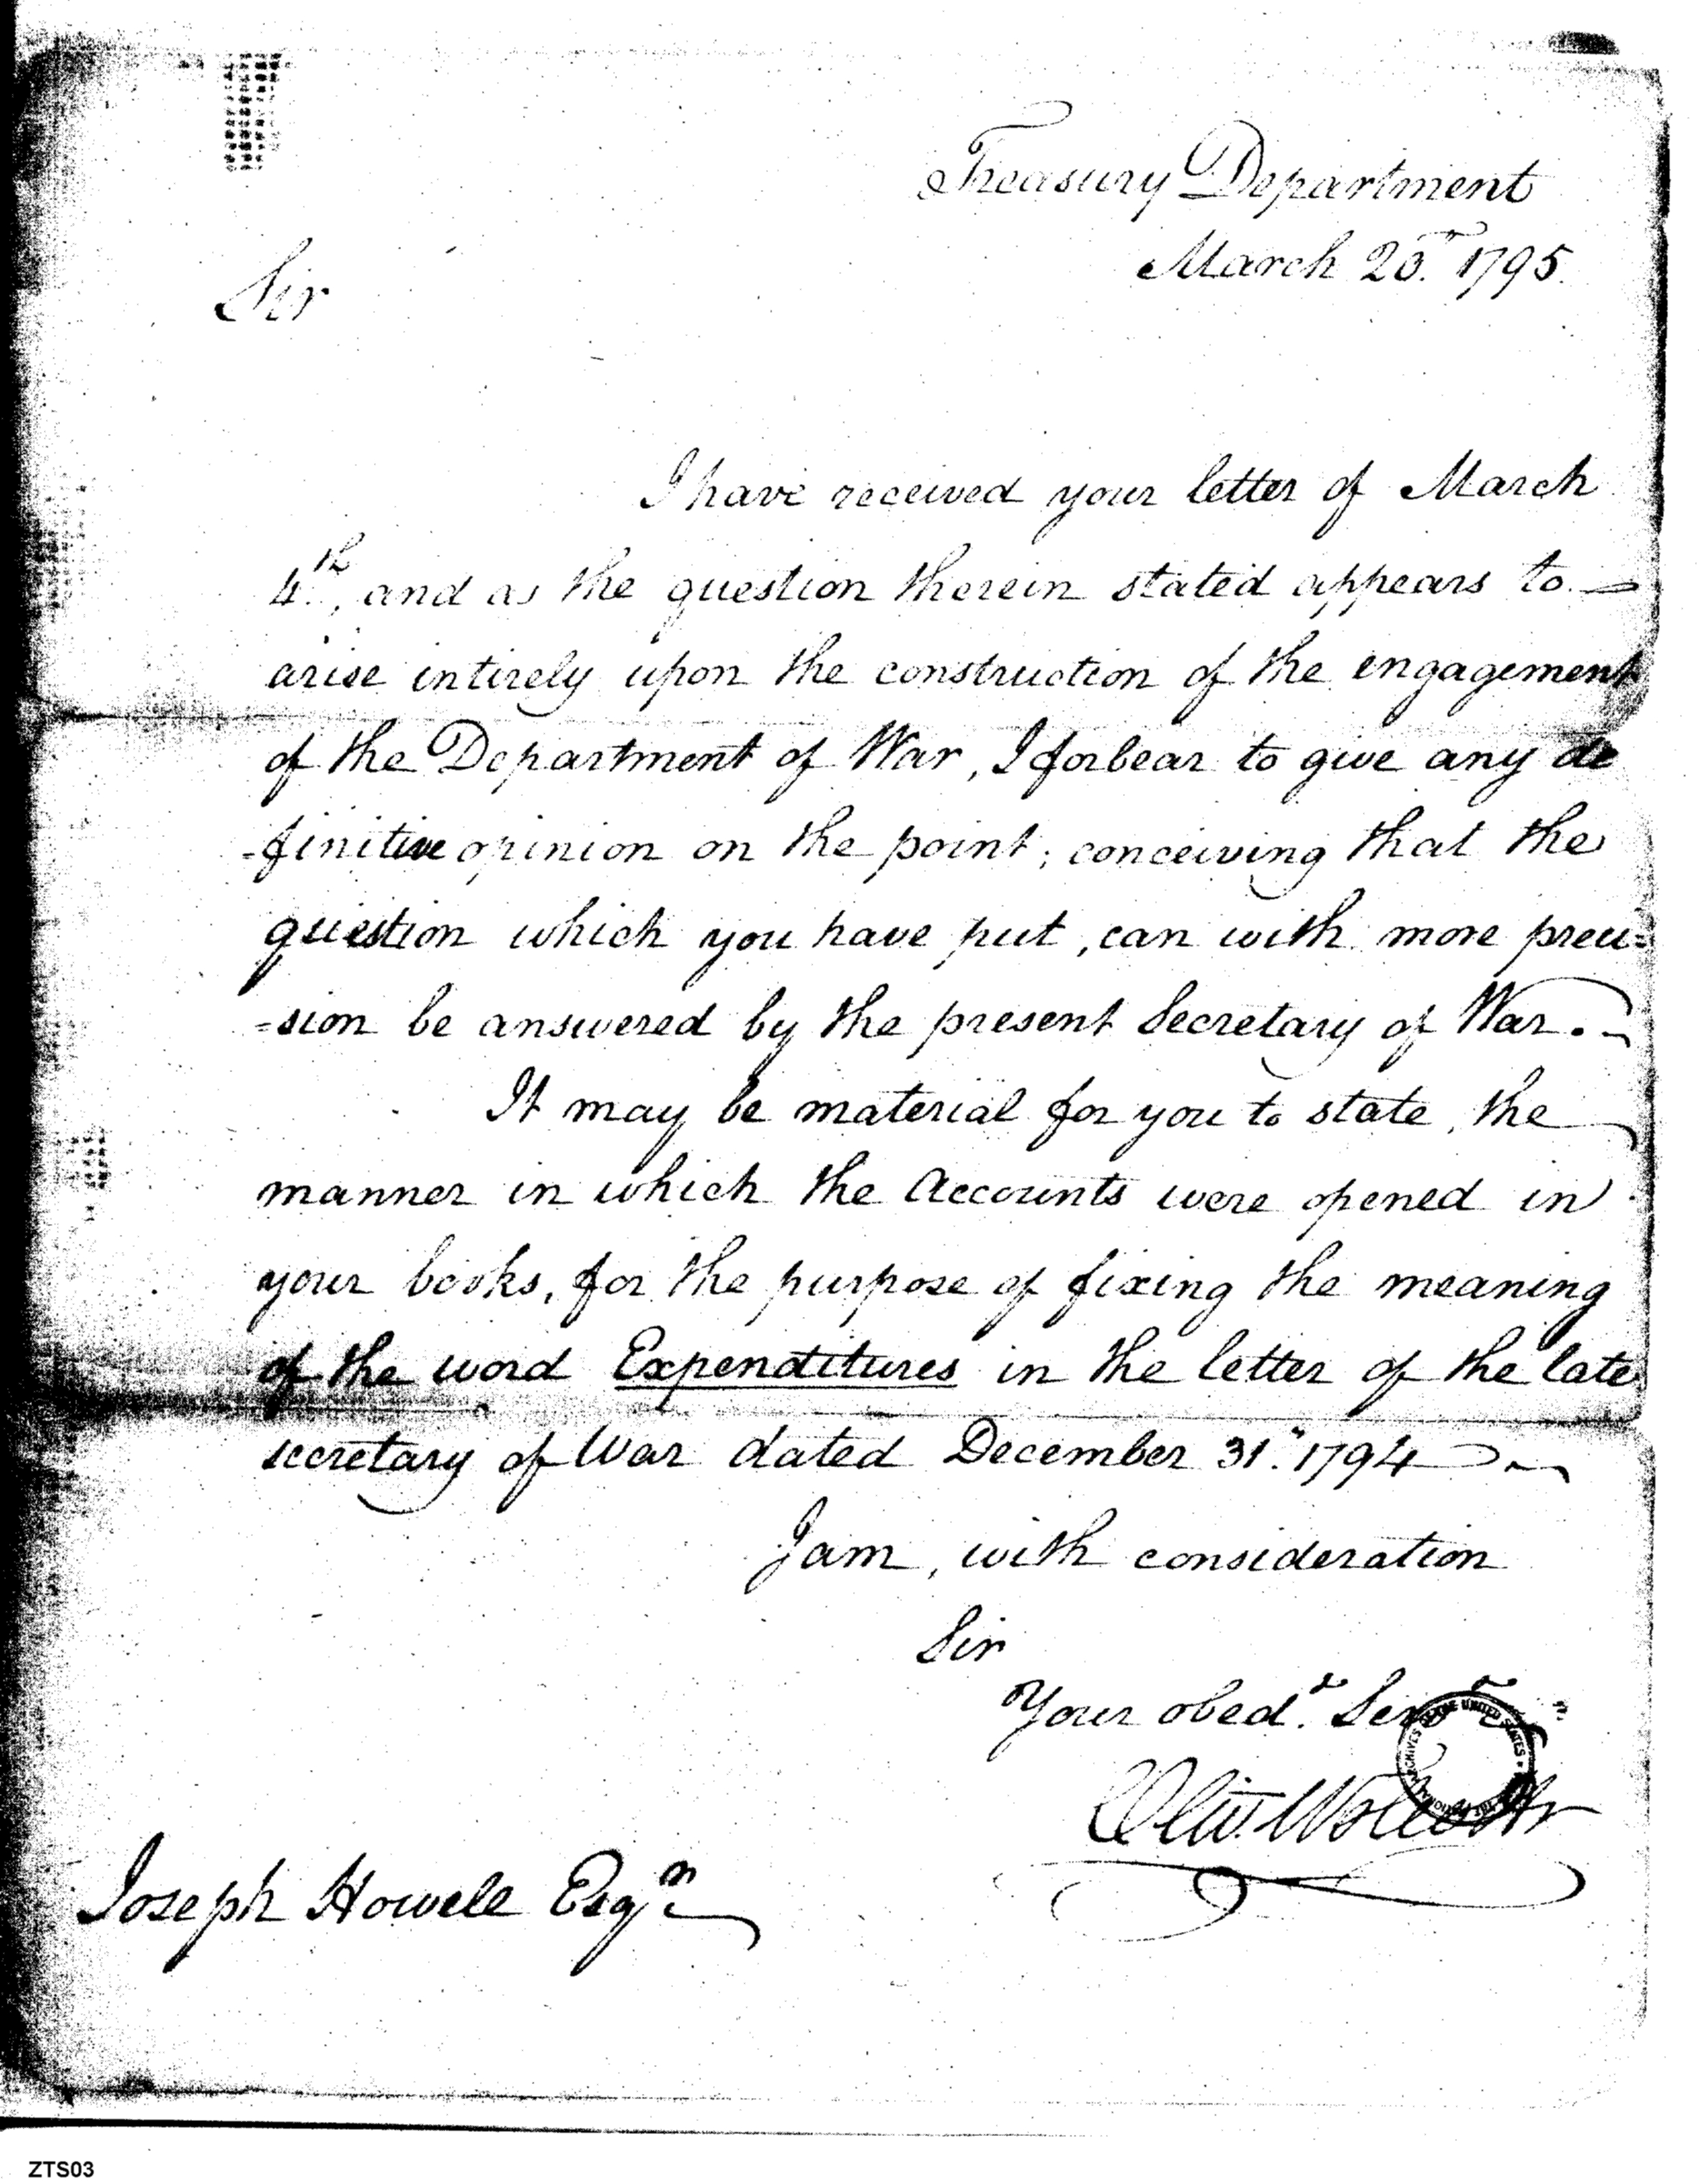 Treasury Department
March 20. 1795.
Sir
I have received your letter of March
4th, and as the question therein stated appears to
arise intirely upon the construction of the engagement
of the Department of War, I forbear to give any de
-finitive opinion on the point; conceiving that the
question which you have put, can with more preci=
=sion be answered by the present Secretary of War.
It may be material for you to state, the
manner in which the Accounts were opened in
your books, for the purpose of fixing the meaning
of the word Expenditures in the letter of the late
secretary of War dated December 31st. 1794
I am, with consideration
Sir
Your obedt. Servt
Oliv. Wolcott Jr
Joseph Howell Esqr
ZTS03